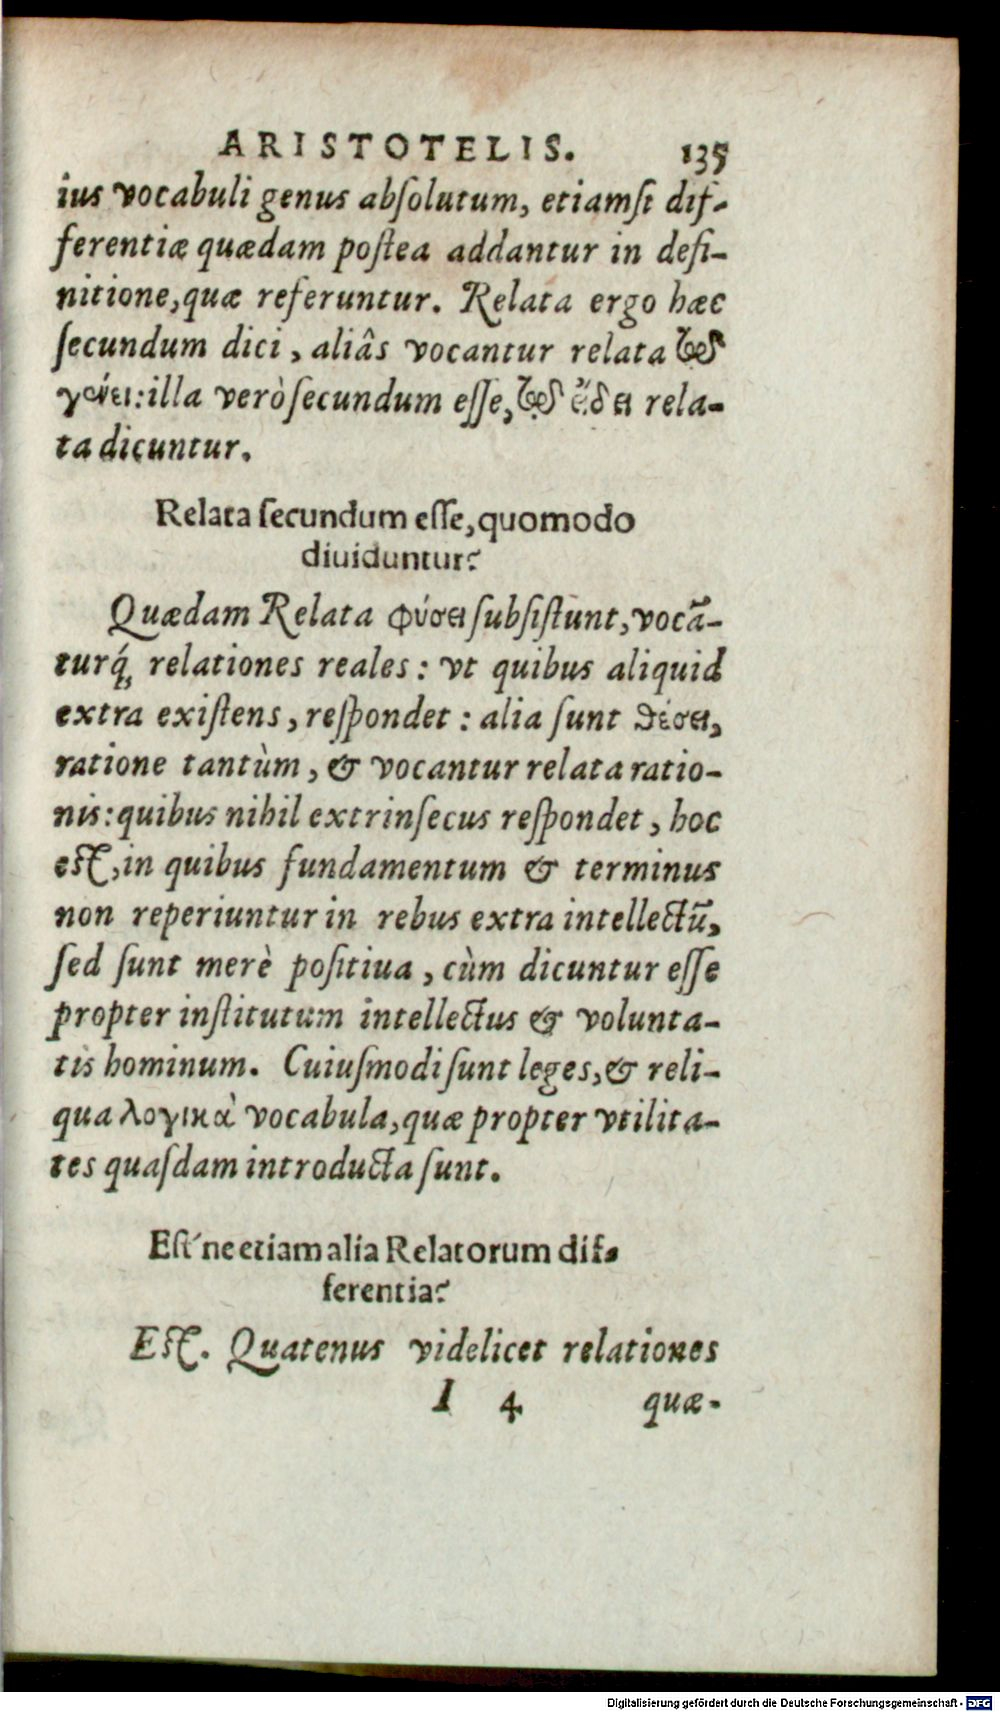 ARISTOTELIS. 135
ius vocabuli genus abſolutum, etiamſi dif-
ferentiæ quædam poſtea addantur in defi-
nitione,quæ referuntur. Relata ergo hæc
ſecundum dici , aliâs vocantur relata
γένει:illa verò ſecundum eſſe, εἴδει rela-
ta dicuntur.
Relata ſecundum eſſe,quomodo
diuiduntur?
Quædam Relata φύσει ſubſiſtunt,vocā-
turq́; relationes reales: vt quibus aliquid
extra exiſtens, reſpondet: alia ſunt θέσει,
ratione tantùm, & vocantur relata ratio-
nis:quibus nihil extrinſecus reſpondet, hoc
eſt,in quibus fundamentum & terminus
non reperiuntur in rebus extra intellectū,
ſed ſunt merè poſitiua , cùm dicuntur eſſe
propter inſtitutum intellectus & volunta-
tis hominum. Cuiuſmodi ſunt leges,& reli-
qua λογικὰ vocabula,quæ propter vtilita-
tes quaſdam introducta ſunt.
Eſt'ne etiam alia Relatorum dif-
ferentia?
Eſt. Quatenus videlicet relationes
I 4 quæ-
Digitalisierung gefördert durch die Deutsche Forschungsgemeinschaft - DFG